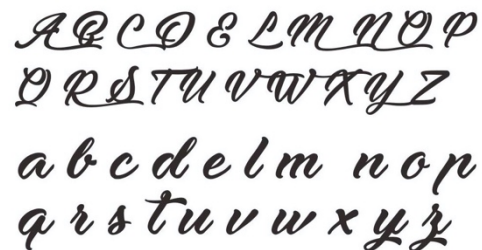 A B C D E L M N O P
Q R S T U V W X Y Z
a b c d e l m n o p
q r s t u v w x y z